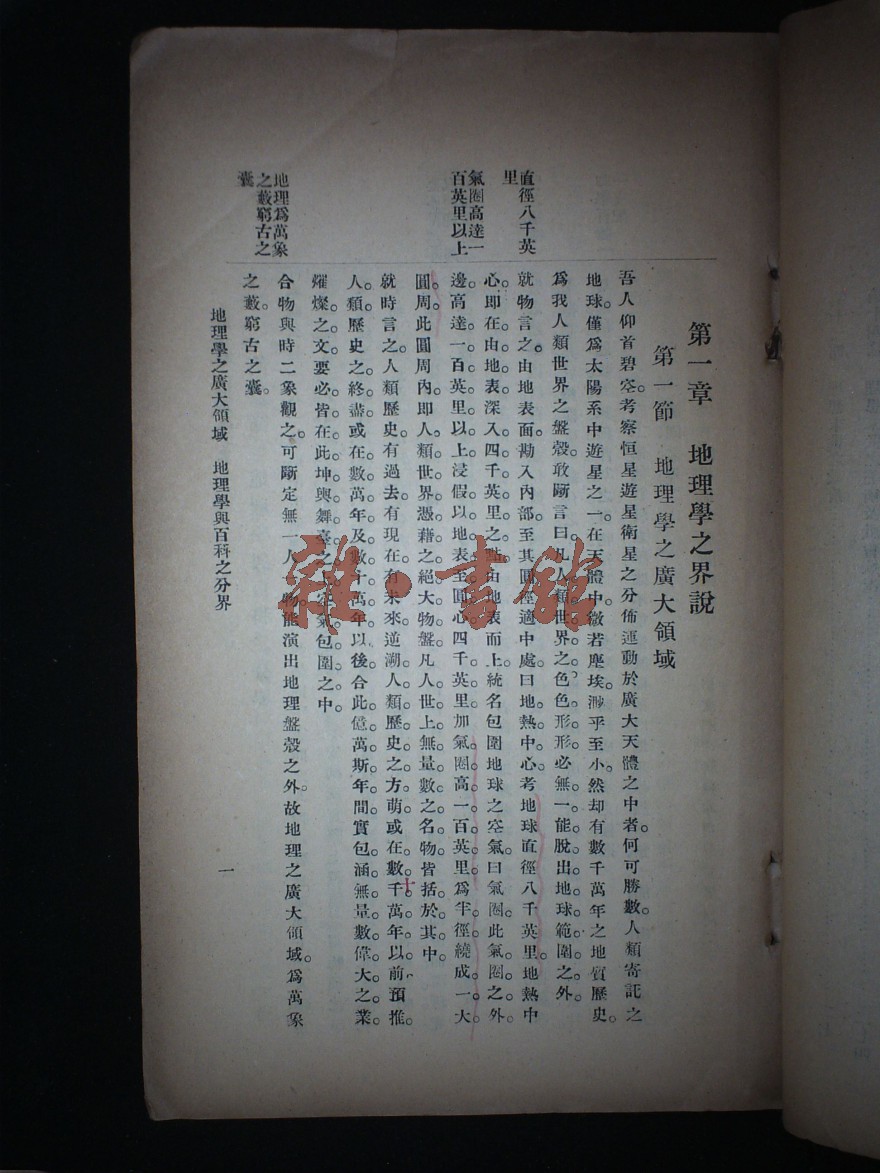 第一章 地理學之界說
第一節 地理學之廣大領域
吾人仰首碧空。考察恒星遊星衛星之分佈運動於廣大天體之中者。何可勝數。人類寄託之
地球。僅爲太陽系中遊星之一。在天體中。微若塵埃。渺乎至小。然却有數千萬年之地質歷史。
爲我人類世界之盤殼。敢斷言曰。凡人類世界之色色形形。必無一能脫出地球範圍之外。
就物言之。由地表面勘入內部。至其圓徑適中處。曰地熱中心。考地球直徑八千英里。地熱中
心。卽在由地表深入四千英里之點。由地表而上。統名包圍地球之空氣。曰氣圈。此氣圈之外
邊。高達一百英里以上。浸假以地表至圓心四千英里。加氣圈高一百英里。爲半徑。繞成一大
圓周。此圓周內。卽人類世界憑藉之絕大物盤。凡人世上無量數之名物。皆括於其中。
就時言之。人類歷史。有過去。有現在。有未來。逆溯人類歷史之方萌。或在數千萬年以前。預推
人類歷史之終盡。或在數萬年及數十萬年以後。合此億萬斯年間。實包涵無量數偉大之業。
燿燦之文。要必皆在此坤輿舞臺之上。空氣包圍之中。
合物與時二象觀之。可斷定無一人一物。能演出地理盤殼之外。故地理之廣大領域。爲萬象
之藪。窮古之囊。
直徑八千英
里
氣圈高達一
百英里以上
地理爲萬象
之藪窮古之
囊
地理學之廣大領域 地理學與百科之分界
一
十
雜·書館